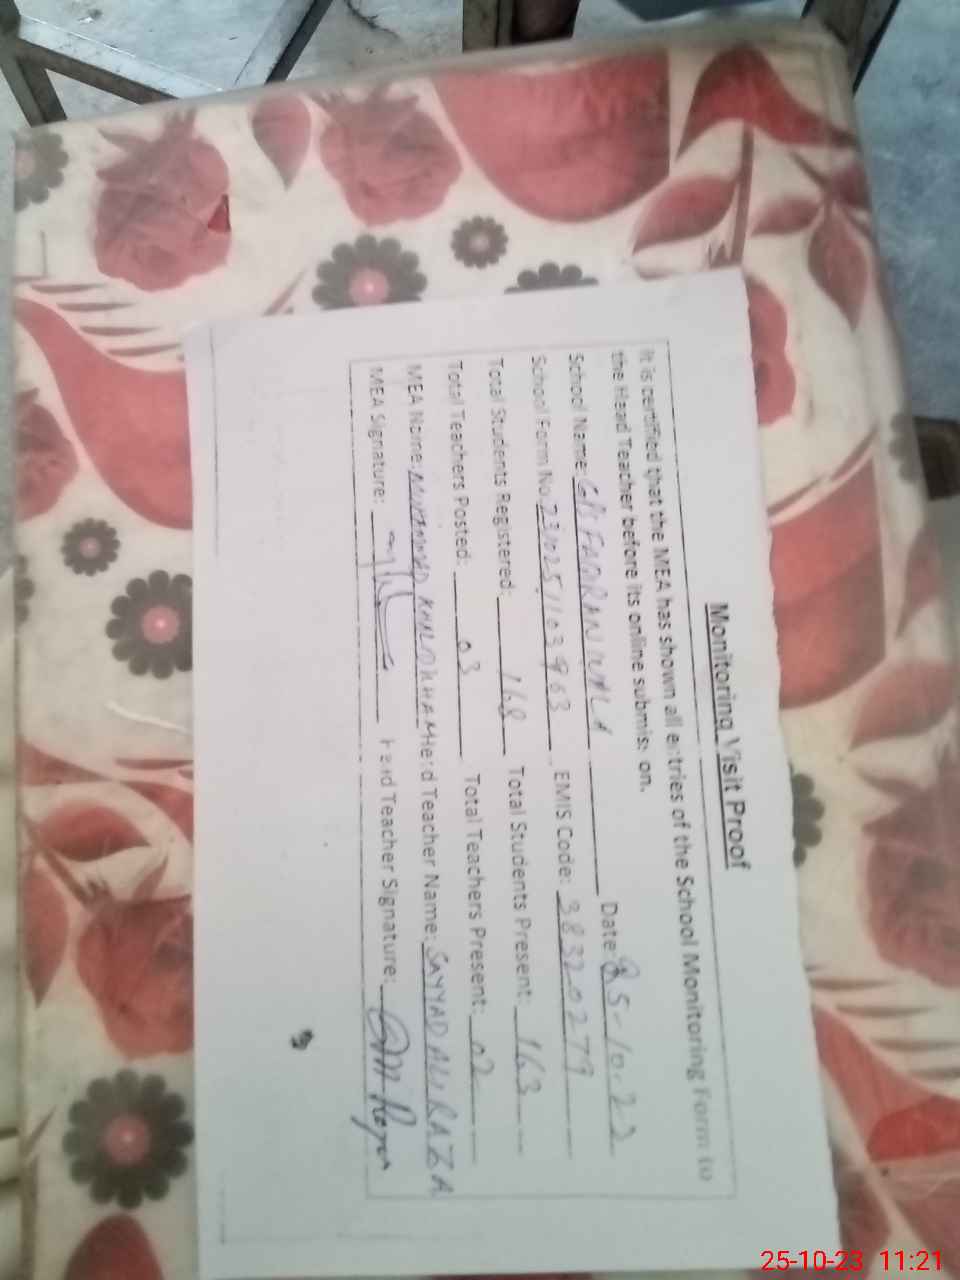 Monitoring Visit Proof
It is certified that the MEA has shown all entries of the School Monitoring Form to
the Head Teacher before its online submission.
School Name: GPS Date: 25-10-23
School Form No: EMIS Code: 38320279
Total Students Registered: 168 Total Students Present: 163
Total Teachers Posted: 03 Total Teachers Present: 02
MEA Name: MUHAMMAD KHALID Head Teacher Name: SAYYAD ALI RAZA
MEA Signature: Head Teacher Signature:
25-10-23 11:21